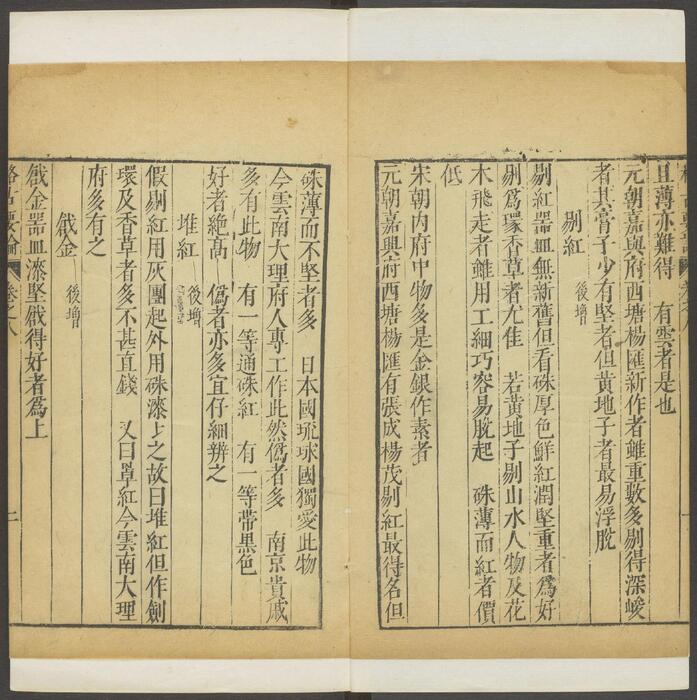 且薄亦難得　有雲者是也
元朝嘉興府西塘楊匯新作者雖重數多剔得深峻
者其膏子少有堅者但黃地子者最易浮脫
剔紅　後增
剔紅器皿無新舊但看硃厚色鮮紅潤堅重者爲好
剔爲環香草者尤佳　若黃地子剔山水人物及花
木飛走者雖用工細巧容易脫起　硃薄而紅者價
低
宋朝內府中物多是金銀作素者
元朝嘉興府西塘楊匯有張成楊茂剔紅最得名但
硃薄而不堅者多　日本國琉球國獨愛此物
今雲南大理府人專工作此然僞者多　南京貴戚
多有此物　有一等通硃紅　有一等帶黑色
好者絶高　僞者亦多宜仔細辨之
堆紅　後增
假剔紅用灰團起外用硃漆上之故曰堆紅但作劍
環及香草者多不甚直錢　又曰罩紅今雲南大理
府多有之
戧金　後增
戧金器皿漆堅戧得好者爲上
格古要論　卷之八　二